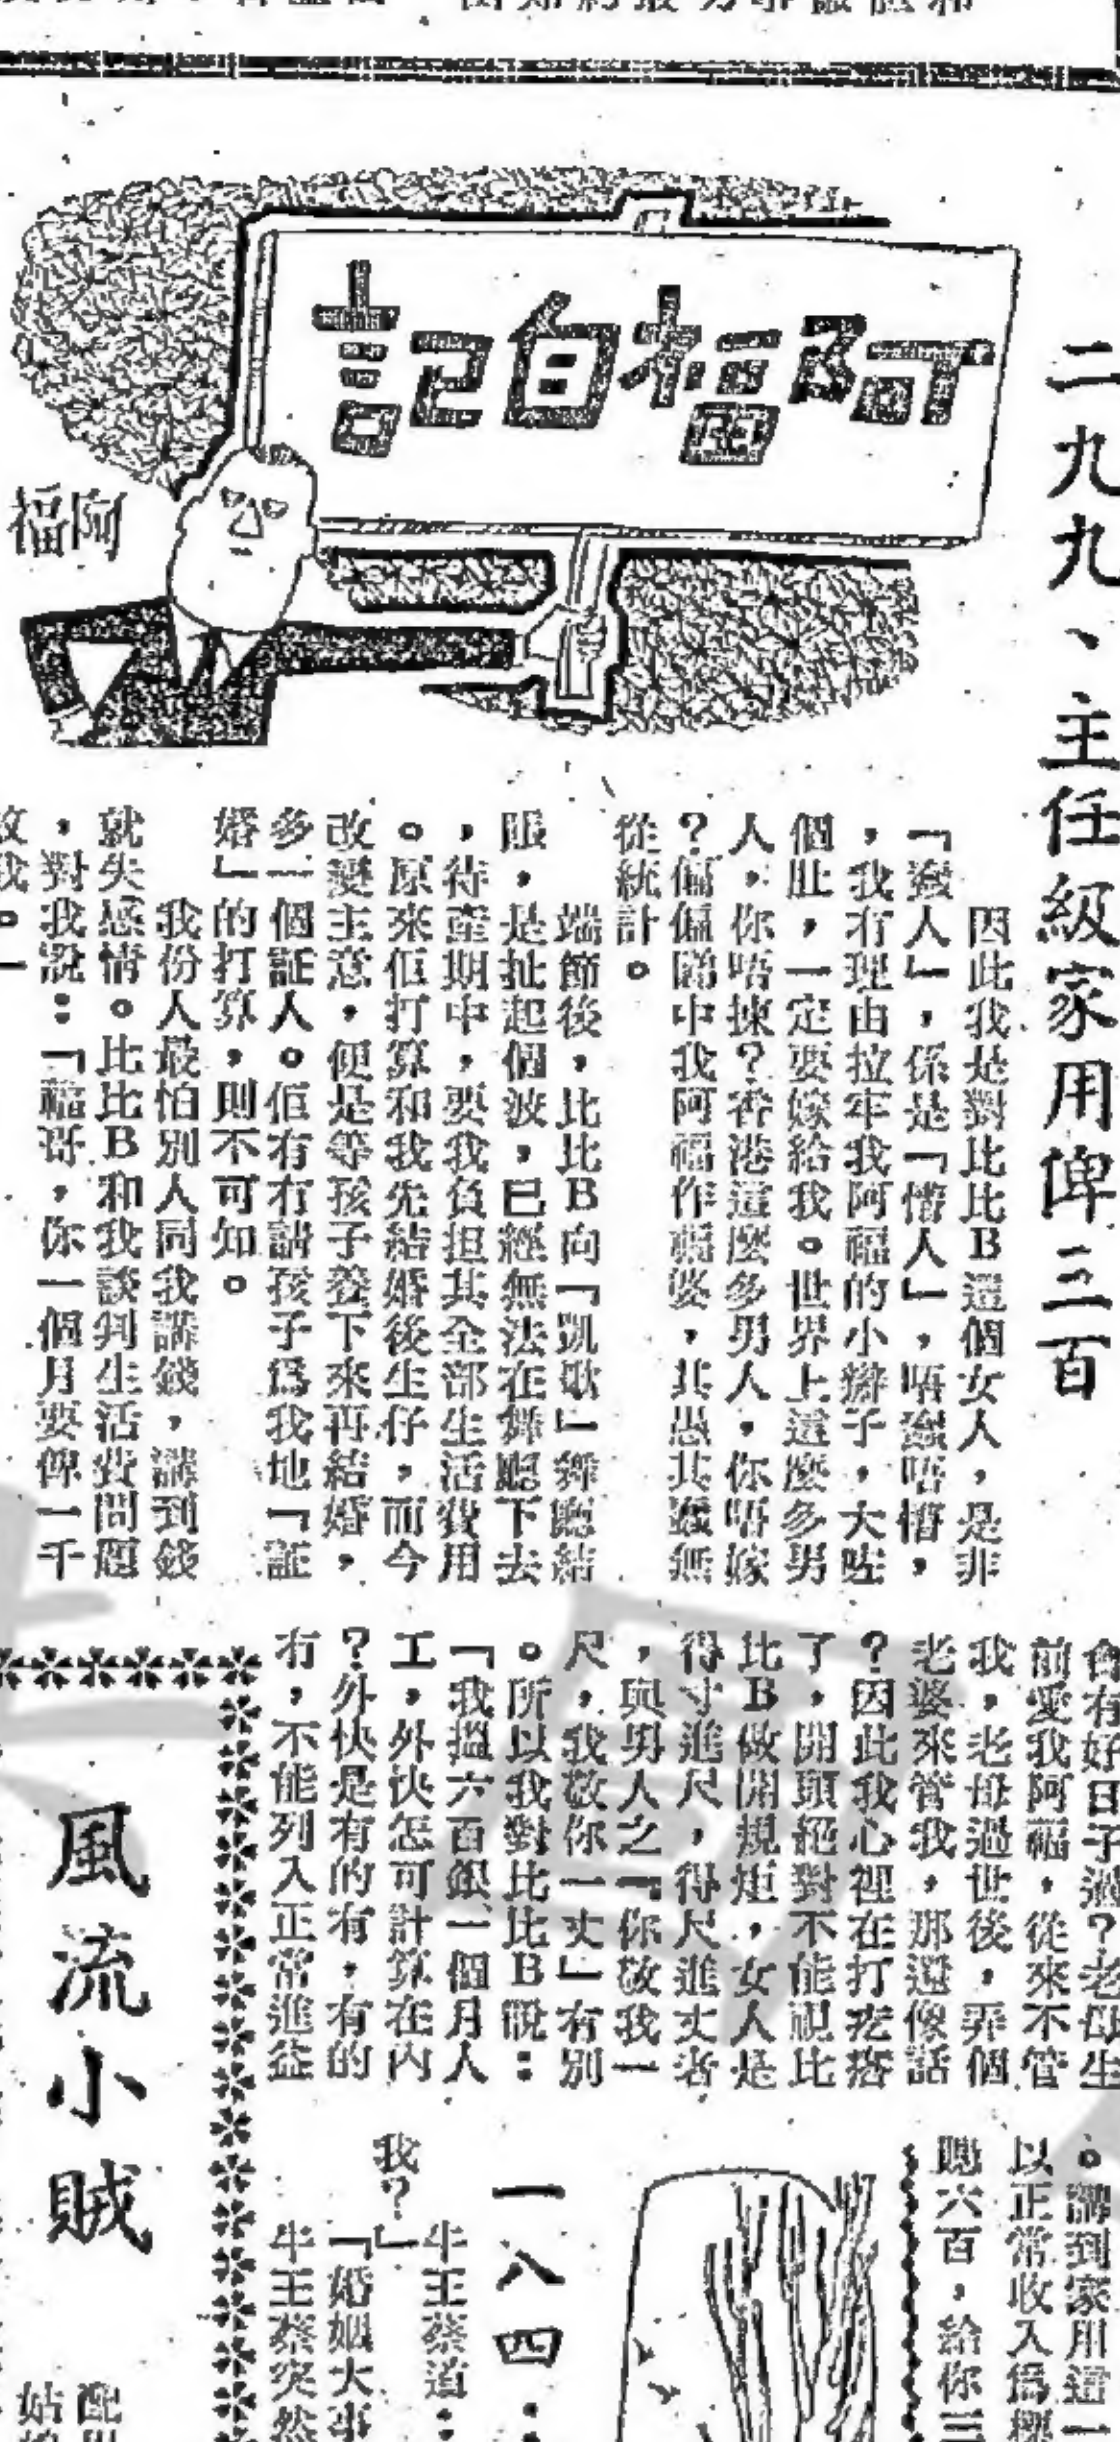 阿福自記
阿福
二九九、主任級家用俾三百
因此我是對比比B這個女人,是非
「蠢人」,係是「懵人」,唔蠢唔懵,
,我冇理由拉牢我阿福的小辮子,大咗
個肚,一定要嫁給我。世界上這麼多男
人,你唔揀?香港這麼多男人,你唔嫁
?偏偏睇中我阿福作福婆,其愚其蠢無
從統計。
端節後,比比B向「凱歌」舞廳結
賬,是扯起個波,已經無法在舞廳下去
,待產期中,要我負担其全部生活費用
。原來佢打算和我先結婚後生仔,而今
改變主意,便是等孩子養下來再結婚,
多一個証人。佢有冇請孩子爲我地「証
婚」的打算,則不可知。
我份人最怕別人同我講錢,講到錢
就失感情。比比B和我談判生活費問題
,對我說:「福哥,你一個月要俾一千
會有好日子過?老母生
前愛我阿福,從來不管
我,老母過世後,弄個
老婆來管我,那還像話
?因此我心裡在打疙瘩
了,開頭絕對不能視比
比B做開規炬,女人是
得寸進尺,得尺進丈者
,與男人之「你敬我一
尺,我敬你一丈」有別
。所以我對比比B說:
「我搵六百銀一個月人
工,外快怎可計算在內
?外快是有的有,有的
冇,不能列入正常進益
。講到家用這一
以正常收入爲標
聽六百,給你三
一八四
牛王蔡道:
「婚姻大事
我?」
牛王蔡突然
風流小賊